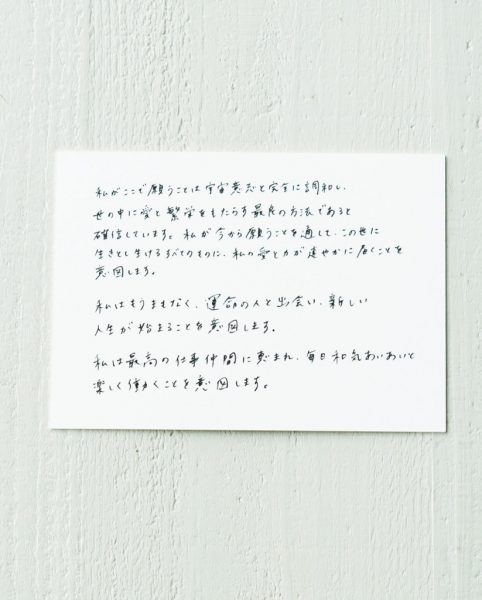 私がここで願うことは宇宙意志と完全に調和し、
世の中に愛と繁栄をもたらす最良の方法であると
確信しています。私が今から願うことを通して、この世に
生きとし生けるすべてのものに、私の愛と力が速やかに届くことを
意図します。
私はもうまもなく、運命の人と出会い、新しい
人生が始まることを意図します。
私は最高の仕事仲間に恵まれ、毎日和気あいあいと
楽しく働くことを意図します。